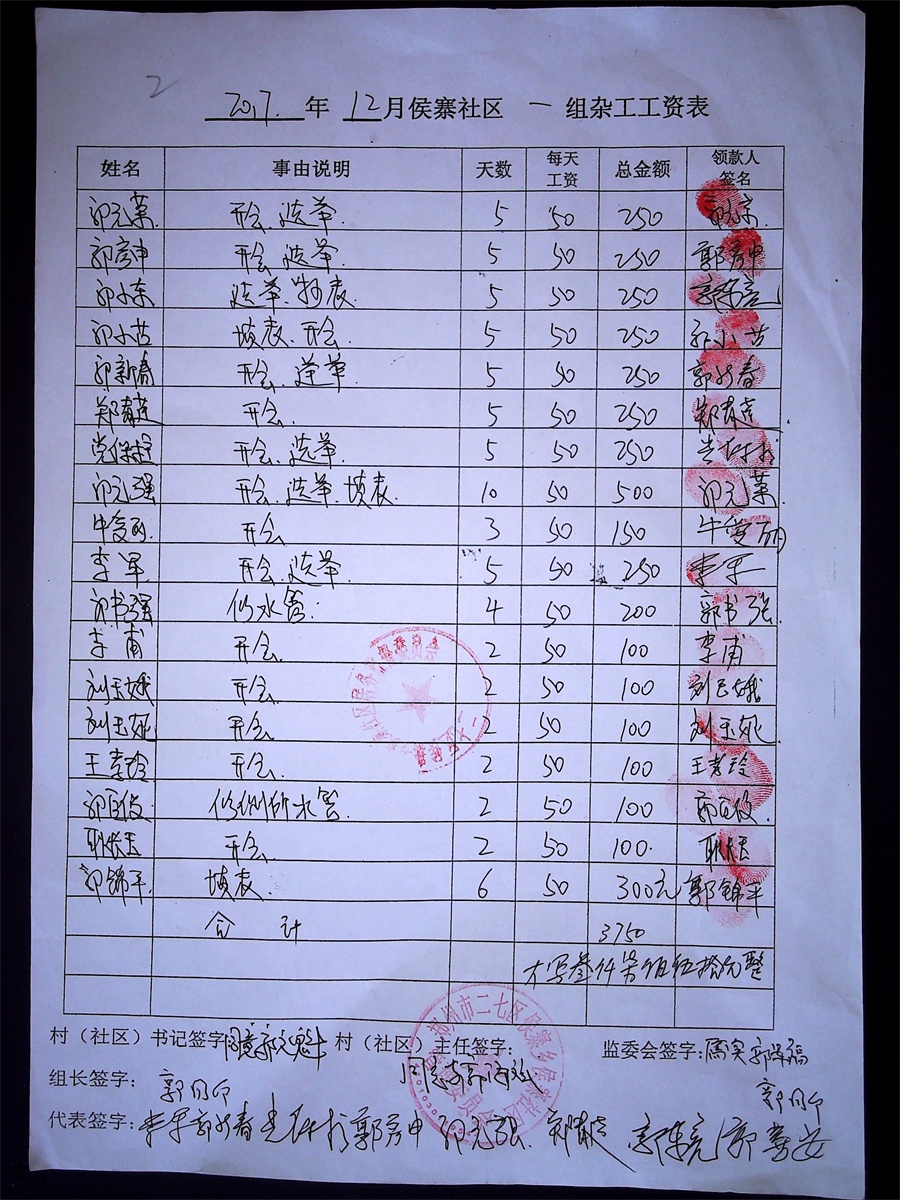 2
2017.年 12月侯寨社区 一 组杂工工资表
姓名 事由说明 天数 每天工资 总金额 领款人签名
郭元叶 开会.选举. 5 50 250
郭彦申 开会.选举 5 50 250 郭彦申
郭小东 选举. 表. 5 50 250
郭小苗 填表.开会 5 50 250 郭小苗
郭新春 开会.选举. 5 50 250 郭新春
郑春莲 开会. 5 50 250 郑春莲
党保拴 开会.选举 5 50 250
郭元强 开会.选举.填表. 10 50 500
牛爱丽 开会 3 50 150 牛爱丽
李军 开会.选举 5 50 250 李军
郭书强 修水管. 4 50 200 郭书强
李甫 开会. 2 50 100 李甫
刘玉娥 开会. 2 50 100 刘玉娥
刘玉妮 开会 2 50 100 刘玉妮
王孝玲 开会. 2 50 100 王孝玲
郭百俊 修厕所水管. 2 50 100 郭百俊.
耿长玉 开会 2 50 100. 耿长玉
郭锦平. 填表. 6 50 300元 郭锦平
合 计 3750
大写叁仟柒佰伍拾元整
村（社区）书记签字 同意 郭文魁 村（社区）主任签字: 监委会签字: 属实 郭保福
组长签字: 郭同印 同意 郭同印
代表签字: 李军 郭新春 党保拴 郭彦申 郭元强. 郑春莲